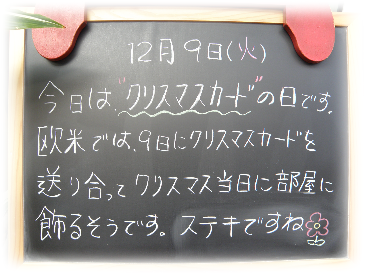 12月9日(火)
今日は、"クリスマスカード"の日です。
欧米では、9日にクリスマスカードを
送り合って クリスマス当日に部屋に
飾るそうです。ステキですね